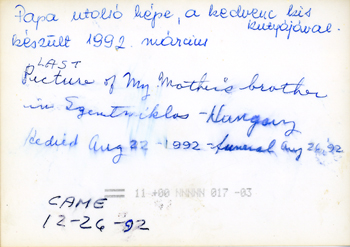 Papa utolsó képe, a kedvenc kis
kutyájával.
készült 1992. március
LAST
Picture of My Mother's brother
in Szentmiklos - Hungary
he died Aug 22 - 1992 - funeral Aug 26 '92
11 +00 NNNNN 017 -03
CAME
12-26-92